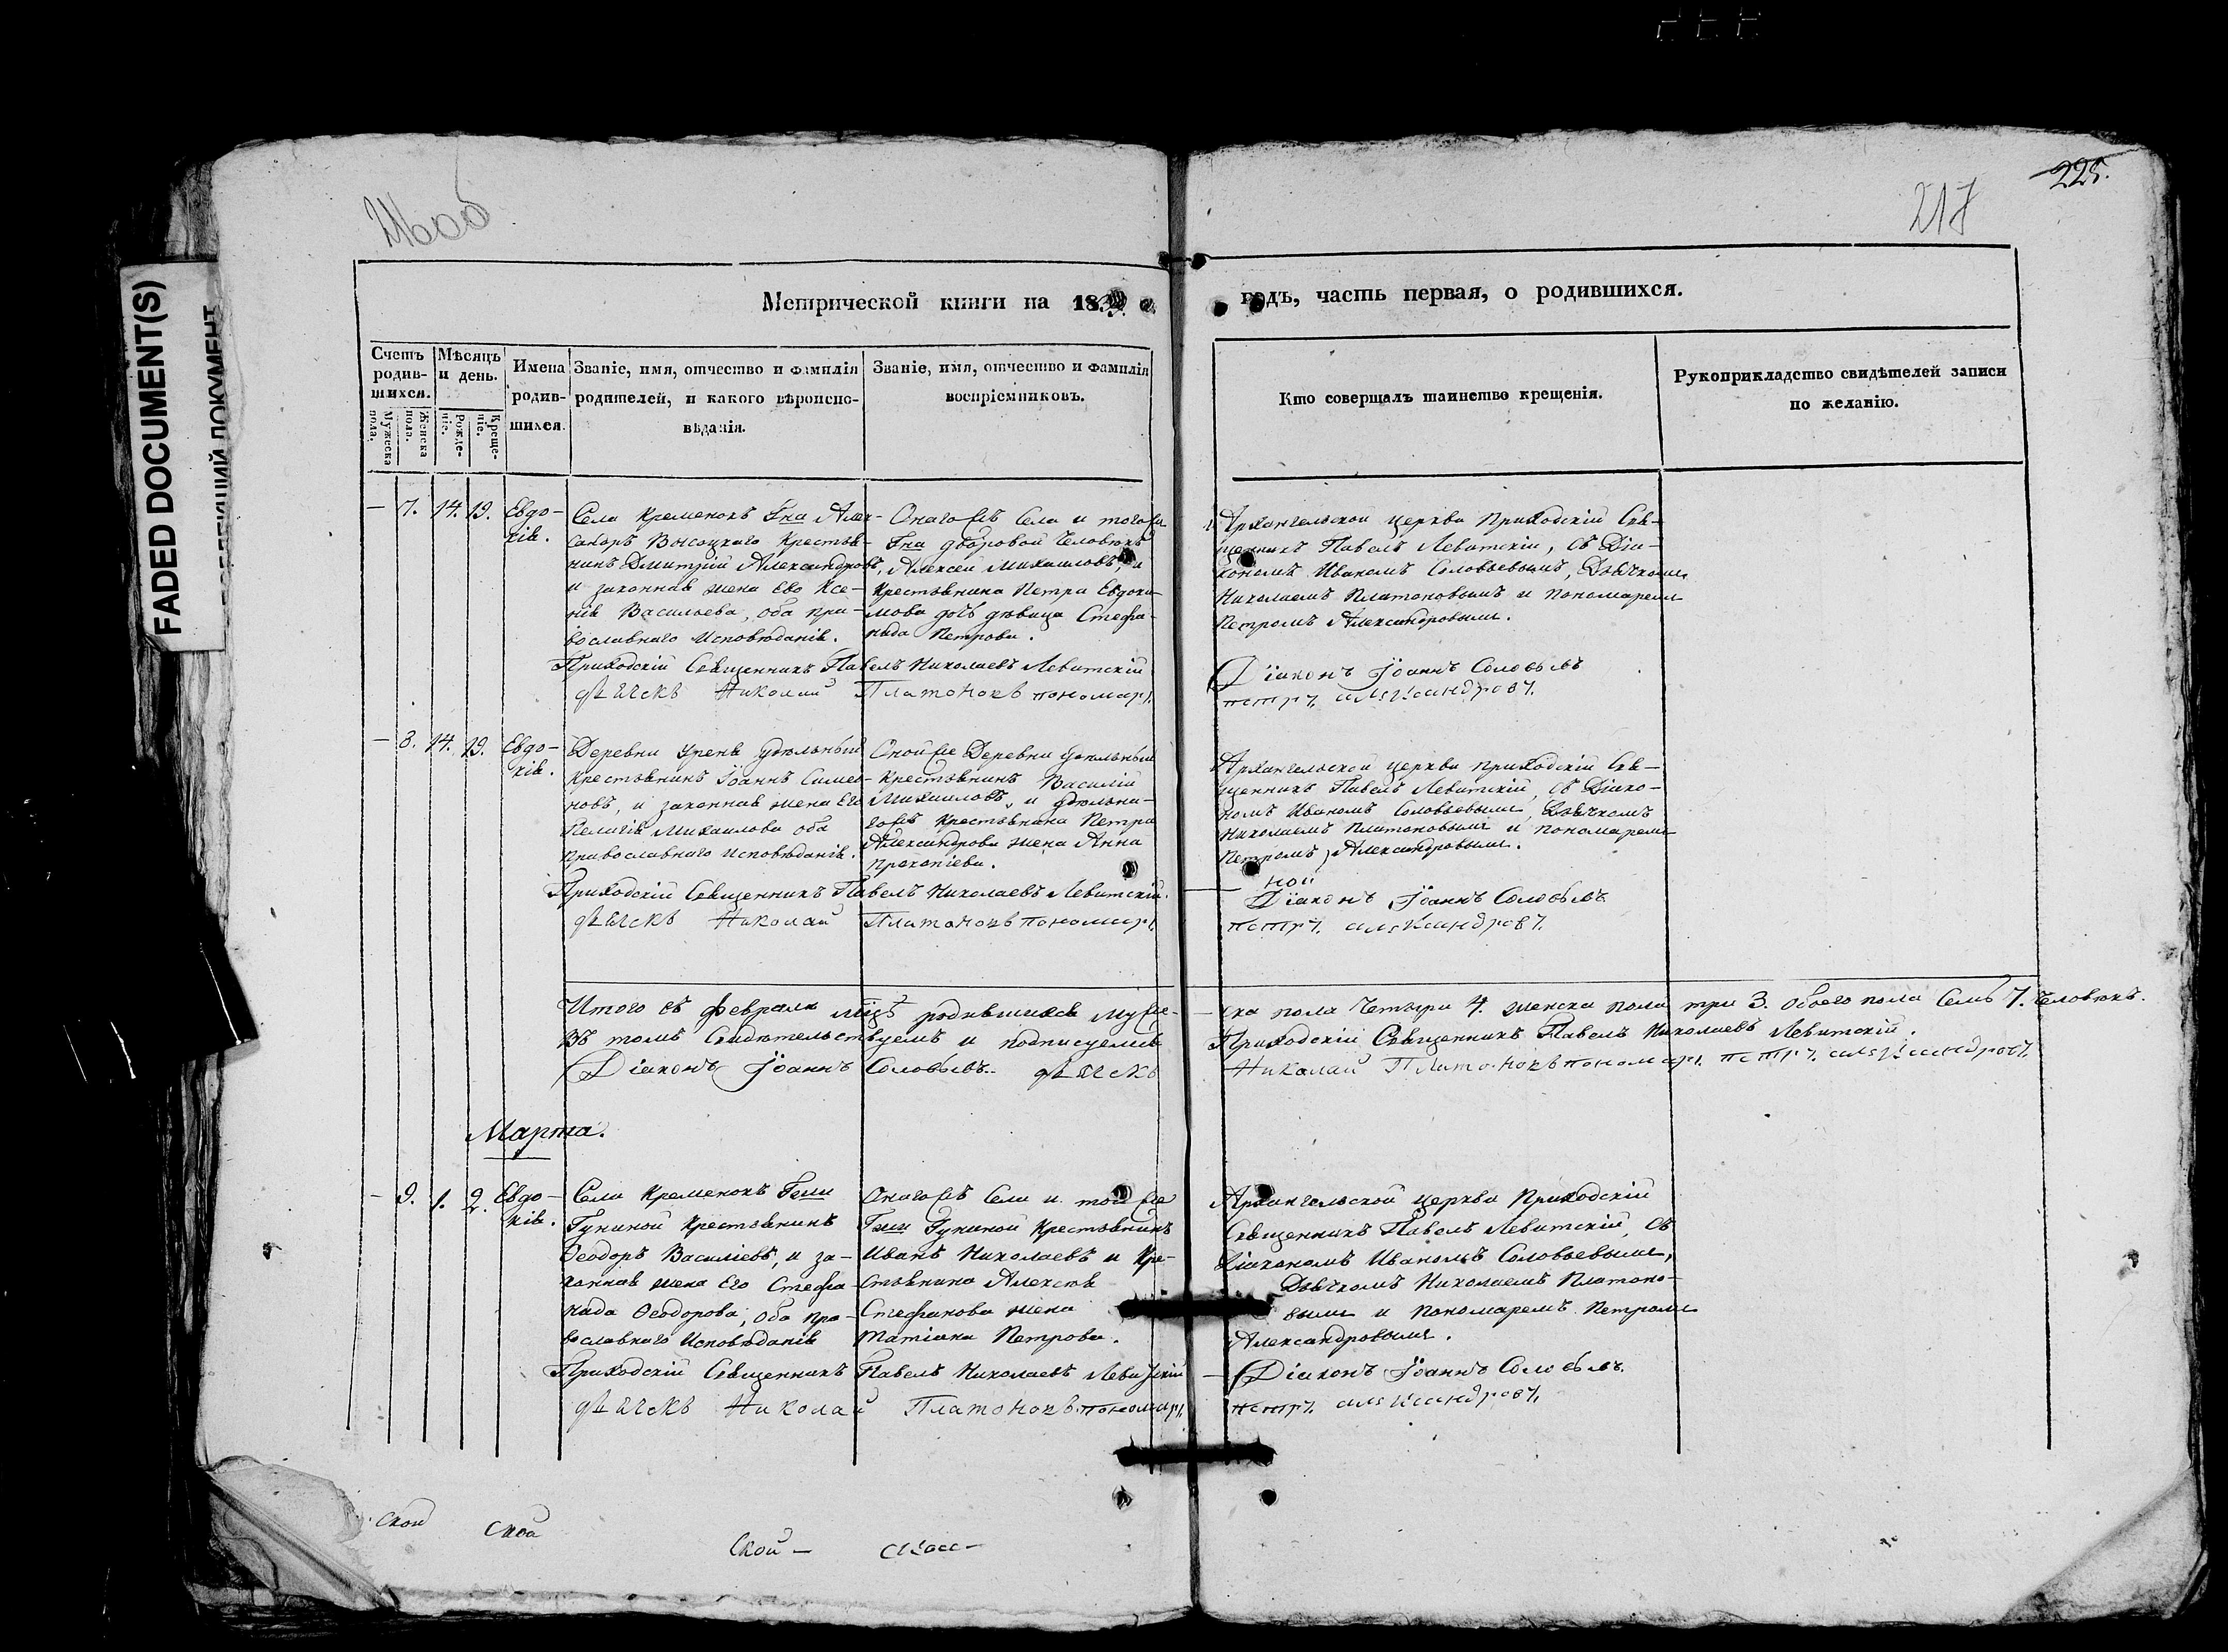 FADED DOCUMENT(S)
216об
217
225.
Метрической книги на 1839 годъ, часть первая, о родившихся.
Счетъ родив-шихся.
Мужеска пола.
Женска пола.
Мѣсяцъ и день.
Рожде-ніе.
Креще-ніе.
Имена родив-шихся.
Званіе, имя, отчество и фамилія
родителей, и какого вѣроиспо-
вѣданія.
Званіе, имя, отчество и фамилія
воспріемниковъ.
Кто совершалъ таинство крещенія.
Рукоприкладство свидѣтелей записи
по желанію.
— 7. 14. 19. Евдо-
кія.
Села Кременокъ Гна Алек-
сандръ Высоцкаго Крестья-
нинъ Дмитрій Александровъ,
и законная жена Его Ксе-
нія Васильева, оба пра-
вославнаго Исповѣданія.
Онагожъ Села и тогоже
Гна дворовой Человѣкъ
Алексей Михаиловъ, и
Крестьянина Петра Евдоки-
мова дочь девица Стефа-
нида Петрова.
Архангельской Церкви Приходскій Свя-
щенникъ Павелъ Левитскій, съ Діа-
кономъ Иваномъ Соловьевымъ, Дьячкомъ
Николаемъ Платоновымъ и Пономаремъ
Петромъ Александровымъ.
Приходскій Священникъ Павелъ Николаевъ Левитскій
Діаконъ Іоаннъ Соловьевъ
дьячекъ Николай Платоновъ пономарь
петръ александровъ
— 8. 14. 19. Евдо-
кія.
Деревни Урени Удѣльный
Крестьянинъ Іоаннъ Симео-
новъ, и законная жена Его
Пелагія Михаилова оба
православнаго Исповѣданія.
Оной же Деревни Удѣльный
Крестьянинъ Василій
Михаиловъ, и Удѣльна-
гожъ Крестьянина Петра
Александрова жена Анна
Прокопіева.
Архангельской Церкви Приходскій Свя-
щенникъ Павелъ Левитскій, съ Діако-
номъ Иваномъ Соловьевымъ, Дьячкомъ
Николаемъ Платоновымъ и Пономаремъ
Петромъ Александровымъ.
ной
Приходскій Священникъ Павелъ Николаевъ Левитскій.
Діаконъ Іоаннъ Соловьевъ
дьячекъ Николай Платоновъ пономарь
петръ александровъ
Итого въ Февралѣ мцѣ родившихся муже-ска пола Четыри 4. женска пола три 3. Обоего пола Семь 7. Человѣкъ.
Въ томъ Свидѣтельствуемъ и подписуемся Приходскій Священникъ Павелъ Николаевъ Левитскій.
Діаконъ Іоаннъ Соловьевъ. дьячекъ Николай Платоновъ пономарь петръ александровъ
Марта.
— 9. 1. 2. Евдо-
кія.
Села Кременокъ Гжи
Гуниной Крестьянинъ
Ѳеодоръ Василіевъ, и за-
конная жена Его Стефа-
нида Ѳеодорова, оба пра-
вославнаго Исповѣданія
Онагожъ Села и той же
Гжи Гуниной Крестьянинъ
Иванъ Николаевъ и Кре-
стьянина Алексѣя
Стефанова жена
Татіана Петрова.
Архангельской Церкви Приходскій
Священникъ Павелъ Левитскій, съ
Діакономъ Иваномъ Соловьевымъ,
Дьячкомъ Николаемъ Платоно-
вымъ и Пономаремъ Петромъ
Александровымъ.
Приходскій Священникъ Павелъ Николаевъ Левитскій
Діаконъ Іоаннъ Соловьевъ.
дьячекъ Николай Платоновъ пономарь
петръ александровъ
ской
ской
Ской —